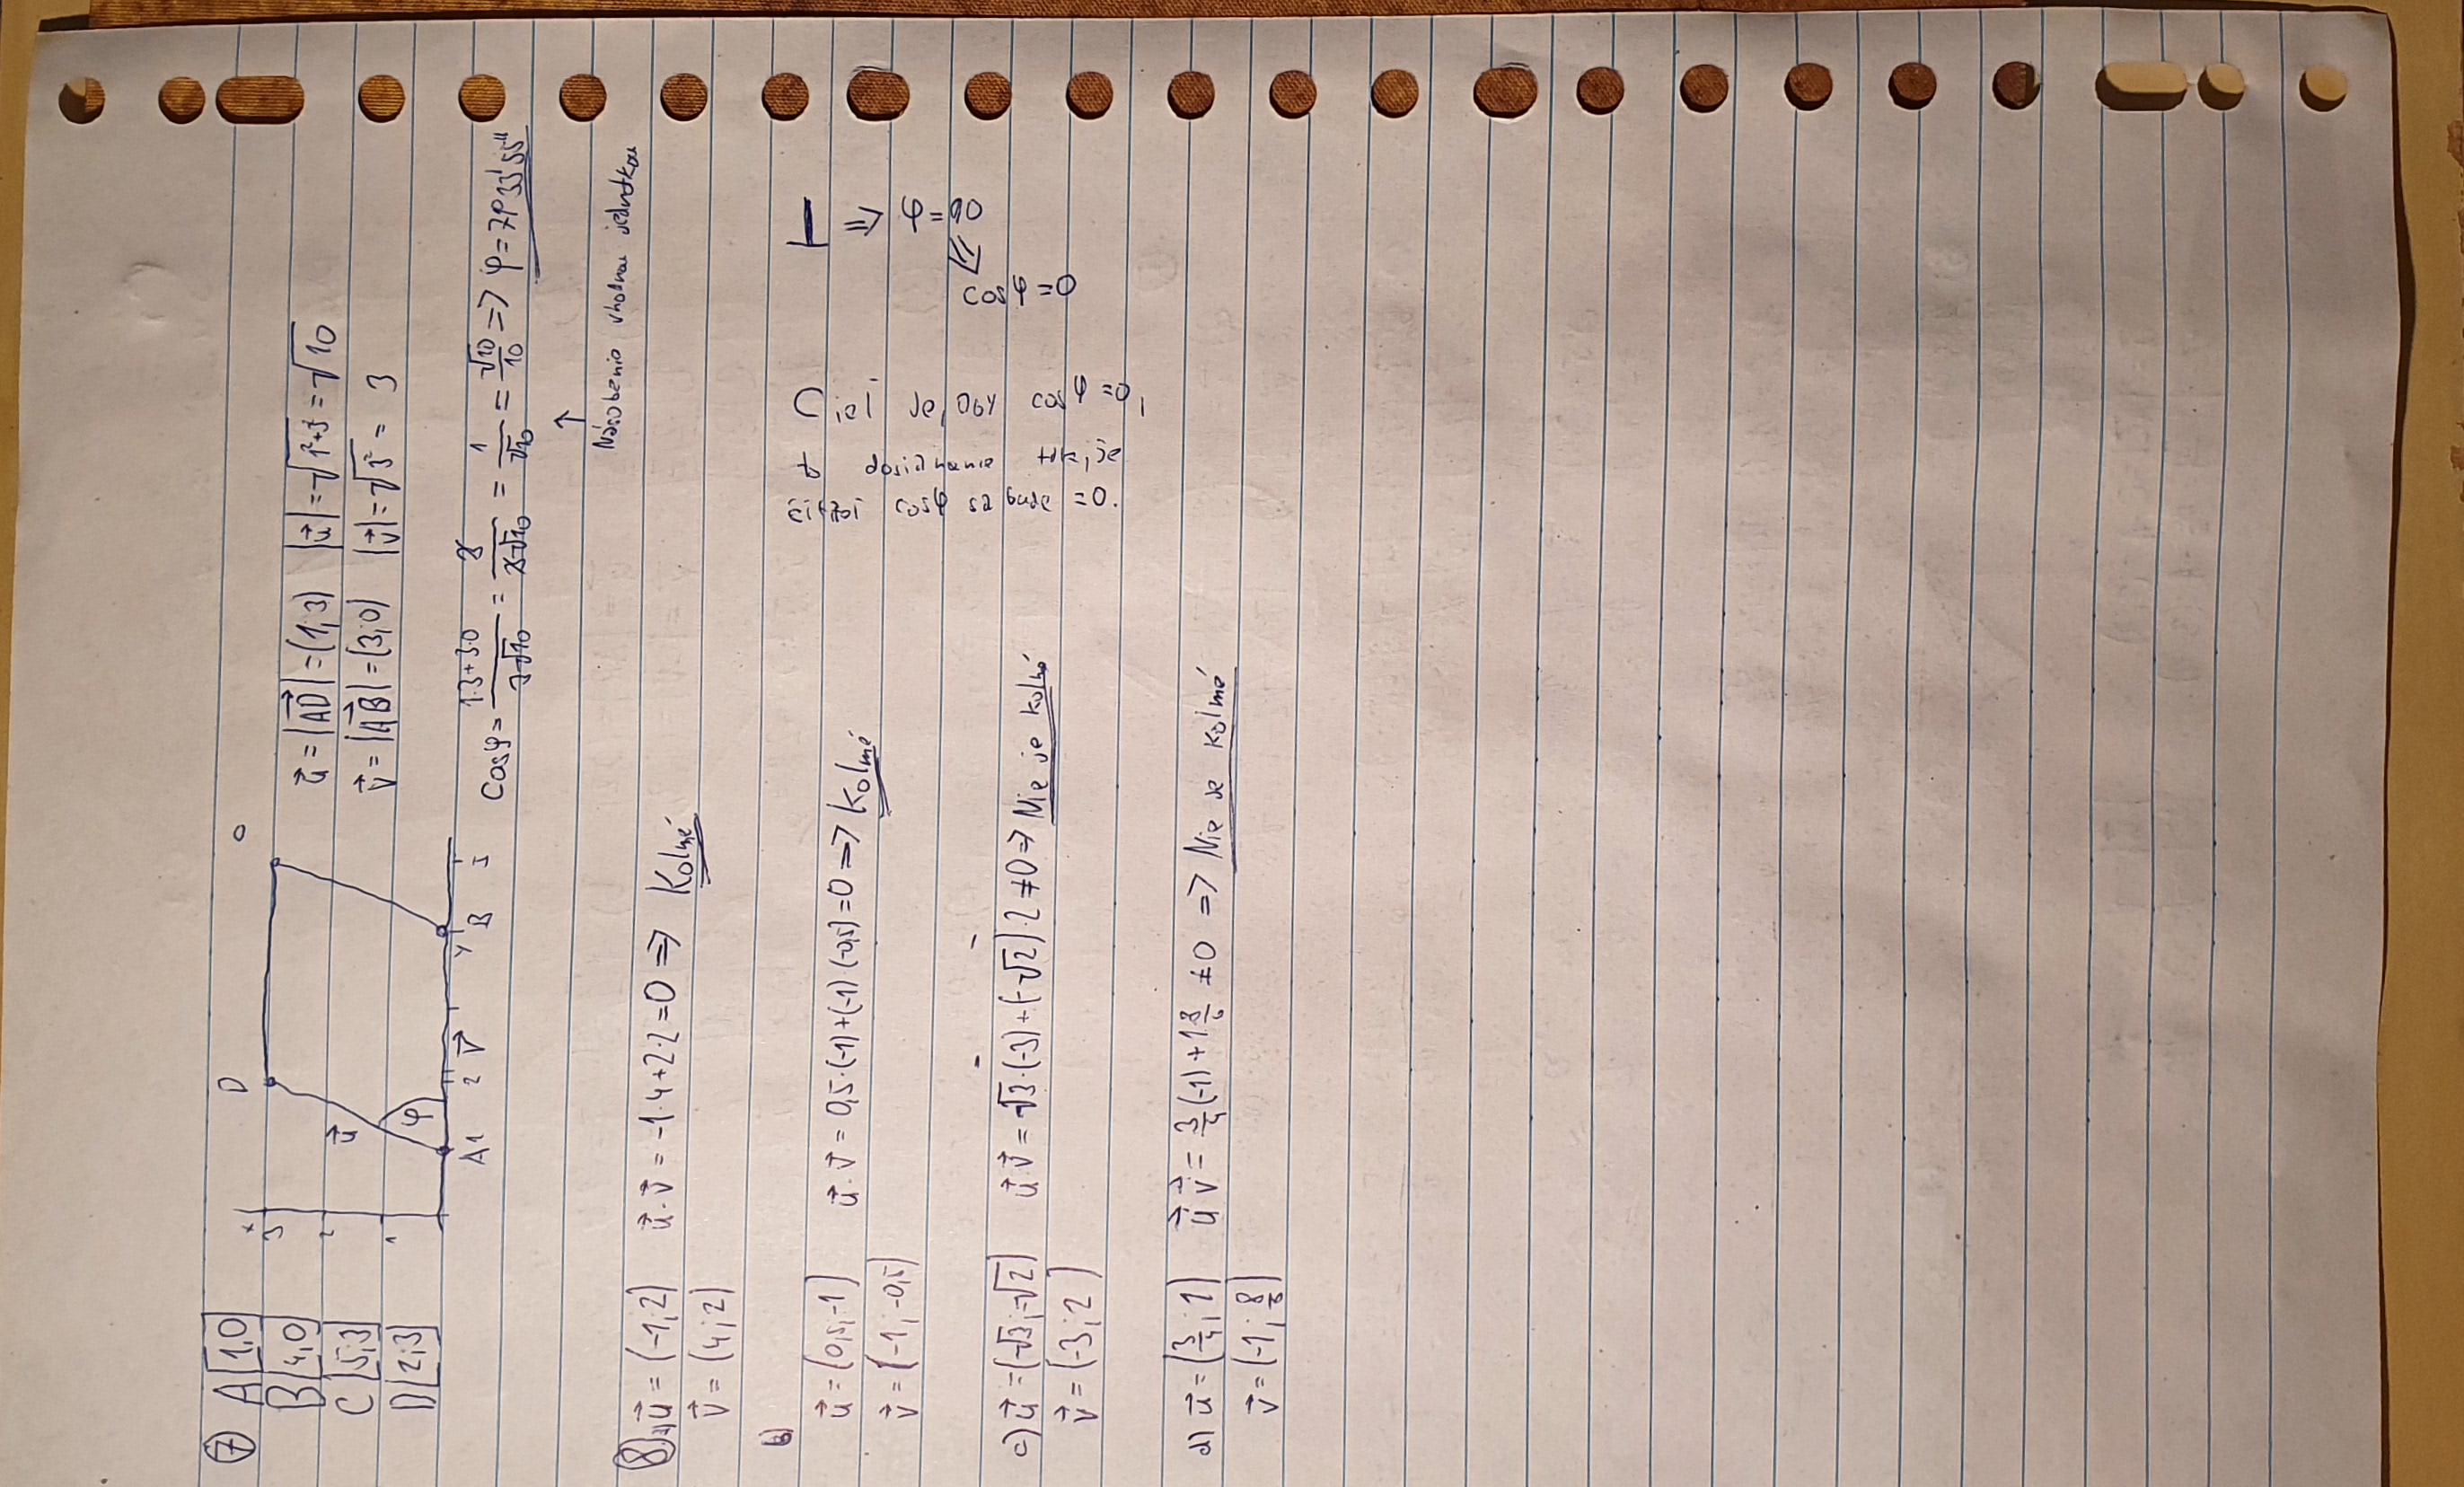 7 A[1,0]
B[4,0]
C[5;3]
D[2;3]
D
3
2
1
u⃗
φ
A 1 2 v⃗ 4 B 5
u⃗ = |AD⃗| = (1; 3) |u⃗| = √1²+3² = √10
v⃗ = |AB⃗| = (3; 0) |v⃗| = √3² = 3
cos φ = 1·3+3·0/3√10 = 3/3√10 = 1/√10 = √10/10 => φ = 71° 33' 55"
↑
Násobenie vhodnou jednotkou
8 a) u⃗ = (-1; 2) u⃗ · v⃗ = -1·4+2·2 = 0 => Kolmé
v⃗ = (4; 2)
b)
u⃗ = (0,5; -1) u⃗ · v⃗ = 0,5·(-1)+(-1)·(-0,5) = 0 => Kolmé
v⃗ = (-1; -0,5)
c) u⃗ = (-√3; -√2) u⃗ v⃗ = √3·(-3)+(-√2)·2 ≠ 0 => Nie je kolmé
v⃗ = (-3; 2)
d) u⃗ = (3/4; 1) u⃗ v⃗ = 3/4(-1)+1 8/6 ≠ 0 => Nie je kolmé
v⃗ = (-1; 8/6)
⊥ => φ = 90
⇓
cos φ = 0
Cieľ je, aby cos φ = 0,
cos φ sa bude = 0.